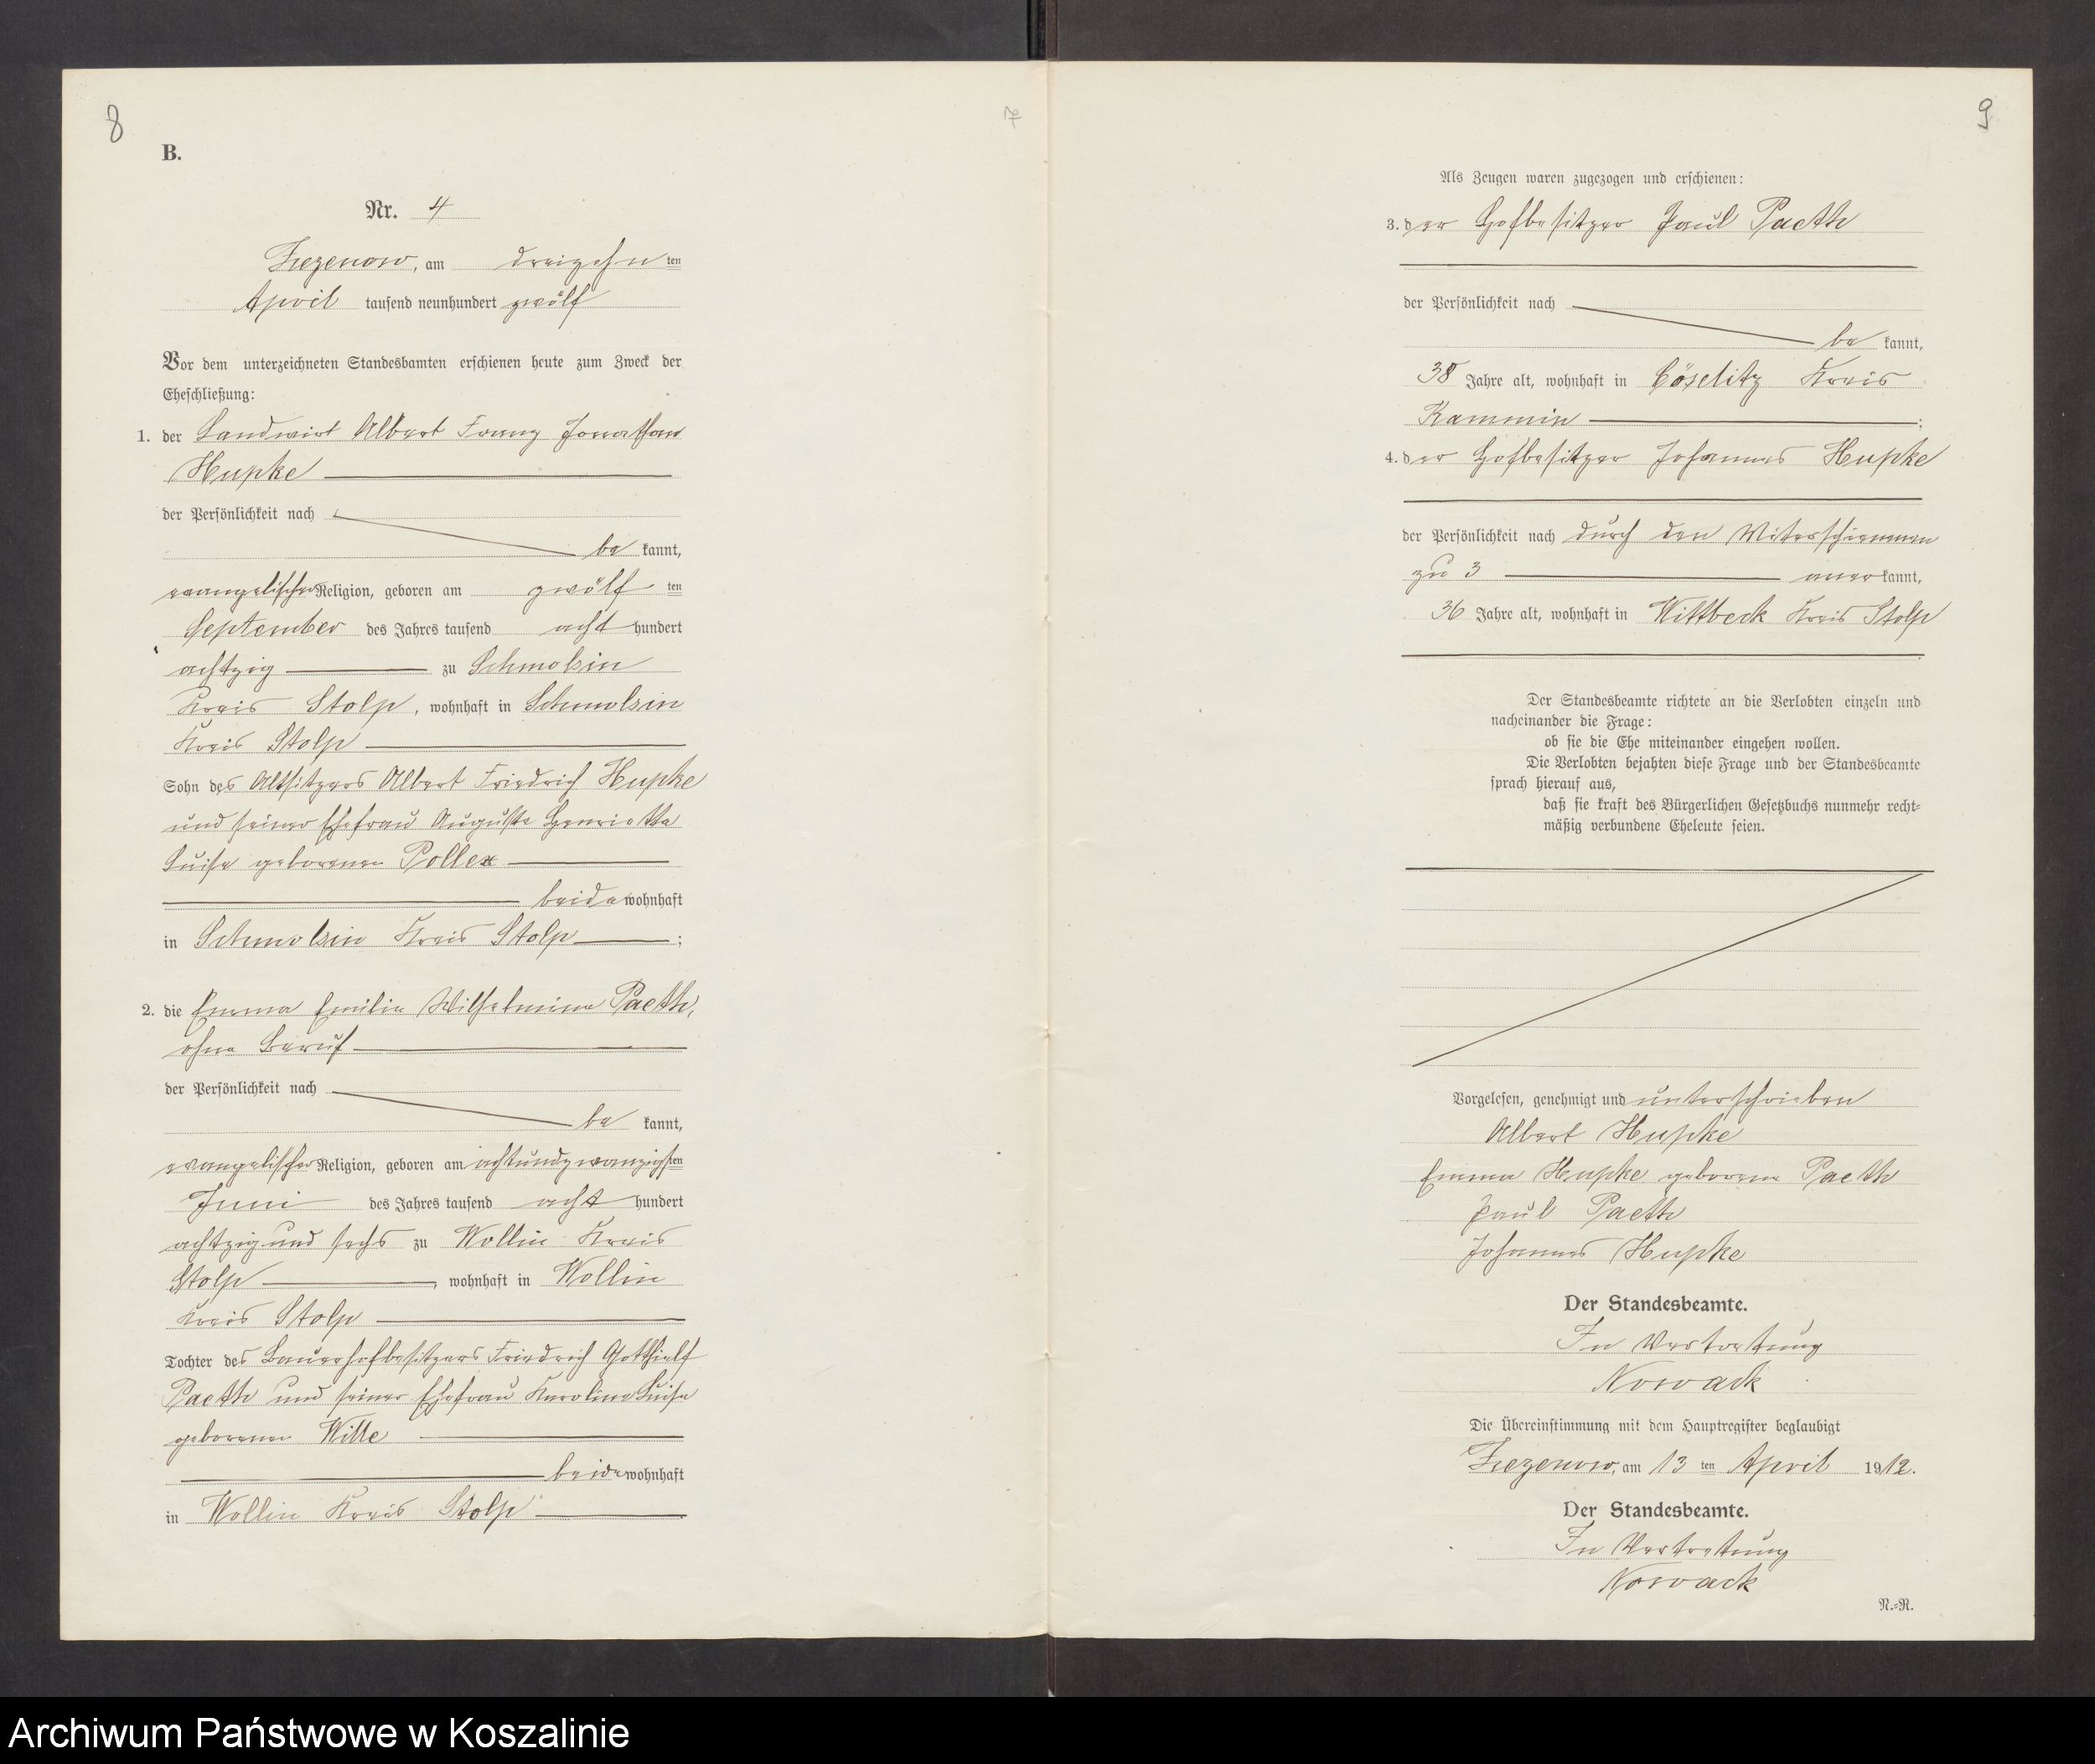 8
B.
Nr. 4
Zezenow, am dreizehnten
April tausend neunhundert zwölf
Vor dem unterzeichneten Standesbamten erschienen heute zum Zweck der
Eheschließung:
1. der Landwirt Albert Franz Jonathan
Hupke
der Persönlichkeit nach
be kannt,
evangelischer Religion, geboren am zwölf ten
September des Jahres tausend acht hundert
achtzig zu Schmolsin
Kreis Stolp, wohnhaft in Schmolsin
Kreis Stolp
Sohn des Altsitzers Albert Friedrich Hupke
und seiner Ehefrau Auguste Henriette
Luise geborenen Pollex
beide wohnhaft
in Schmolsin Kreis Stolp;
2. die Emma Emilie Wilhelmine Paeth,
ohne Beruf
der Persönlichkeit nach
be kannt,
evangelischer Religion, geboren am achtundzwanzigsten
Juni des Jahres tausend acht hundert
achtzig und sechs zu Wollin Kreis
Stolp, wohnhaft in Wollin
Kreis Stolp
Tochter des Bauerhofbesitzers Friedrich Gotthielf
Paeth und seiner Ehefrau Karoline Luise
geborenen Witte
beide wohnhaft
in Wollin Kreis Stolp
7
9
Als Zeugen waren zugezogen und erschienen:
3. der Hofbesitzer Paul Paeth
der Persönlichkeit nach
be kannt,
38 Jahre alt, wohnhaft in Cöselitz Kreis
Kammin;
4. der Hofbesitzer Johannes Hupke
der Persönlichkeit nach durch den Miterschienenen
zu 3 anerkannt,
36 Jahre alt, wohnhaft in Wittbeck Kreis Stolp
Der Standesbeamte richtete an die Verlobten einzeln und
nacheinander die Frage:
ob sie die Ehe miteinander eingehen wollen.
Die Verlobten bejahten diese Frage und der Standesbeamte
sprach hierauf aus,
daß sie kraft des Bürgerlichen Gesetzbuchs nunmehr recht-
mäßig verbundene Eheleute seien.
Vorgelesen, genehmigt und unterschrieben
Albert Hupke
Emma Hupke geborene Paeth
Paul Paeth
Johannes Hupke
Der Standesbeamte.
In Vertretung
Nowack
Die Übereinstimmung mit dem Hauptregister beglaubigt
Zezenow, am 13 ten April 1912.
Der Standesbeamte.
In Vertretung
Nowack
N.-R.
Archiwum Państwowe w Koszalinie